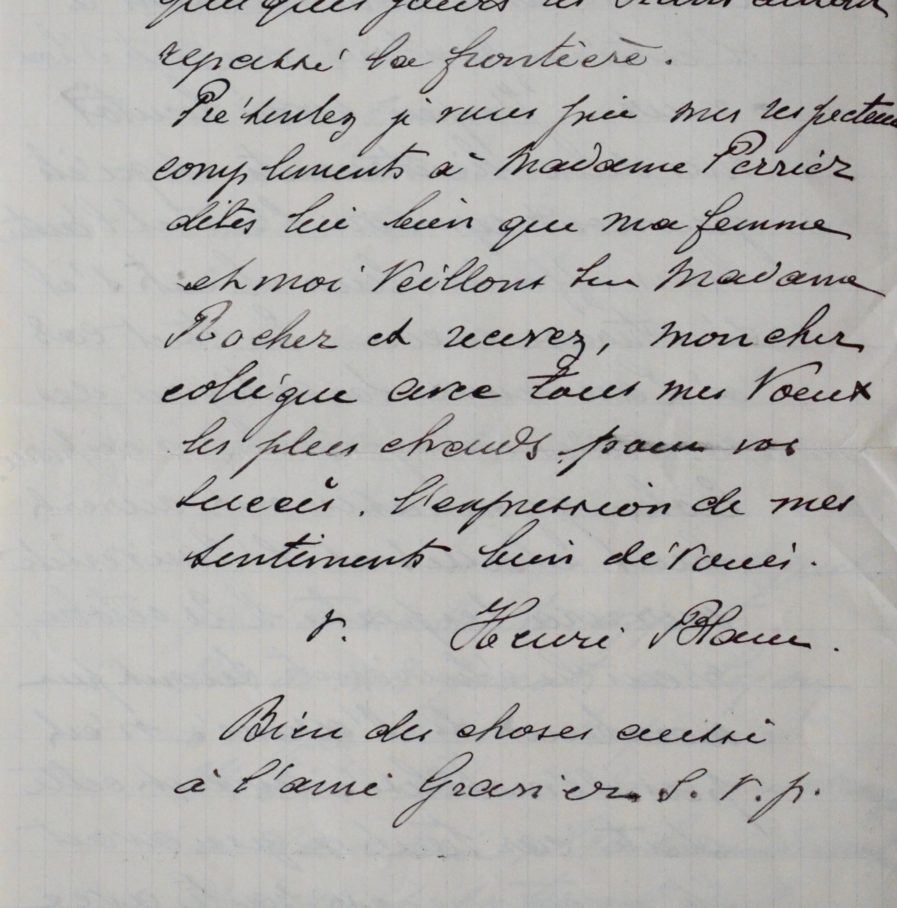 quelques jours les auront
repassé la frontière.
Présentez je vous prie mes respectueux
compliments à Madame Perrier
dites lui bien que ma femme
et moi Veillons sur Madame
Rocher et recevez, mon cher
collègue avec tous mes Voeux
les plus chauds pour vos
succès, l'expression de mes
sentiments bien dévoués.
Henri Blanc.
Bien des choses aussi
à l'ami Grasier S.V.p.